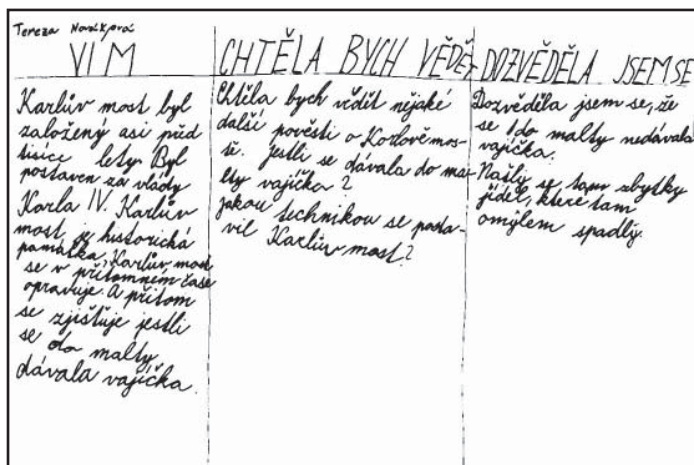 Tereza Nováková
VÍM
Karlův most byl
založený asi před
tisíce lety. Byl
postaven za vlády
Karla IV. Karlův
most je historická
památka, Karlův most
se v přítomném čase
opravuje. A přitom
se zjišťuje jestli
se do malty
dávala vajíčka.
CHTĚLA BYCH VĚDĚT
Chtěla bych vědět nějaké
další pověsti o Karlově mos-
tě. jestli se dávala do ma-
lty vajíčka?
jakou technikou se posta-
vil Karlův most?
DOZVĚDĚLA JSEM SE
Dozvěděla jsem se, že
se do malty nedávala
vajíčka.
Našly se tam zbytky
jídel, které tam
omylem spadly.